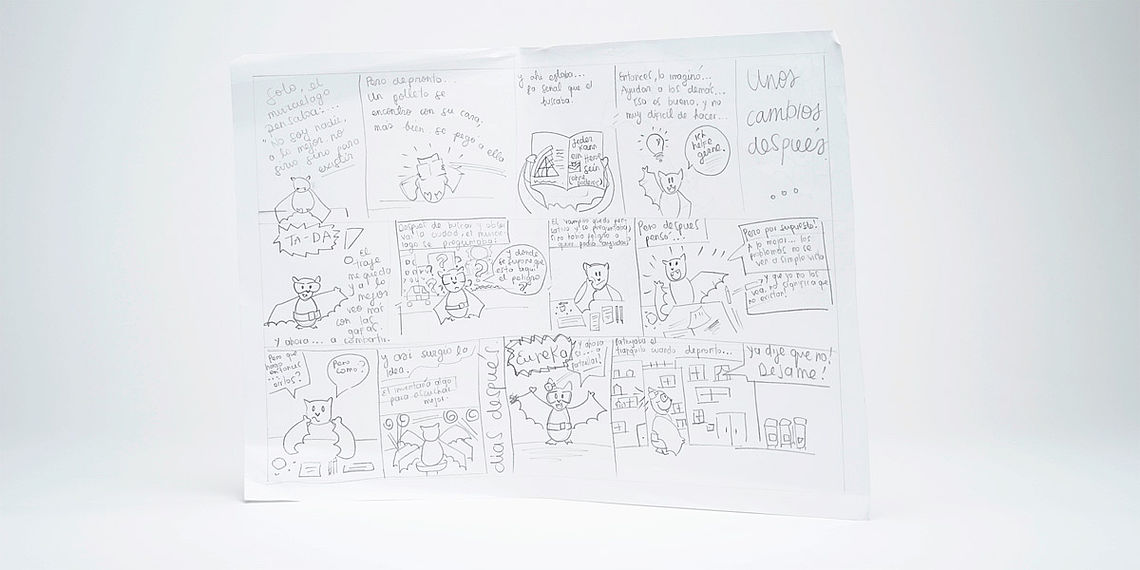 Solo, el
murcielago
pensaba:...
"No soy nadie,
a lo mejor no
sirvo sino para
existir
Pero depronto...
Un folleto se
encontro con su cara,
mas bien se pego a ella
y ahi estaba...
la señal que el
buscaba!
Jeder
kann
ein
Held
sein
Entonces, lo imaginó...
Ayudar a los demas...
Eso es bueno, y no
muy dificil de hacer...
Ich
helfe
gerne.
Unos
cambios
después
...
TA-DA!
El
traje
me queda
y a lo
mejor
veo mas
con las
gafas.
Y ahora... a combatir.
Despues de buscar y
la ciudad, el murcie-
lago se preguntaba:
y donde
se supone que
esta aqui
el peligro
?
El vampiro quedo pen-
sativo y se preguntaba,
si no habia peligro a
quien podia
Pero despues
penso...
Pero por supuesto!
A lo mejor... los
problemas no se
ven a simple vista
y que yo no los
vea, no significa que
no existan!
Pero que
hago
...
Pero...
como?
y asi surgio la
idea.
El inventaria algo
para escuchar
mejor.
días después
Eureka
y ahora
a
patrullar!
Patrullaba el
tranquilo cuando depronto...
ya dije que no!
Déjame!